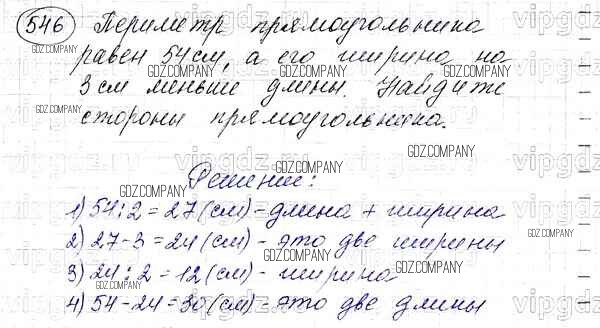 546 Периметр прямоугольника
равен 54 см, а его ширина на
3 см меньше длины. Найдите
стороны прямоугольника.
Решение:
1) 54:2=27(см)-длина + ширина
2) 27-3=24(см)-это две ширины
3) 24:2=12(см)-ширина
4) 54-24=30(см)-это две длины
GDZ.COMPANY
vipgdz.ru